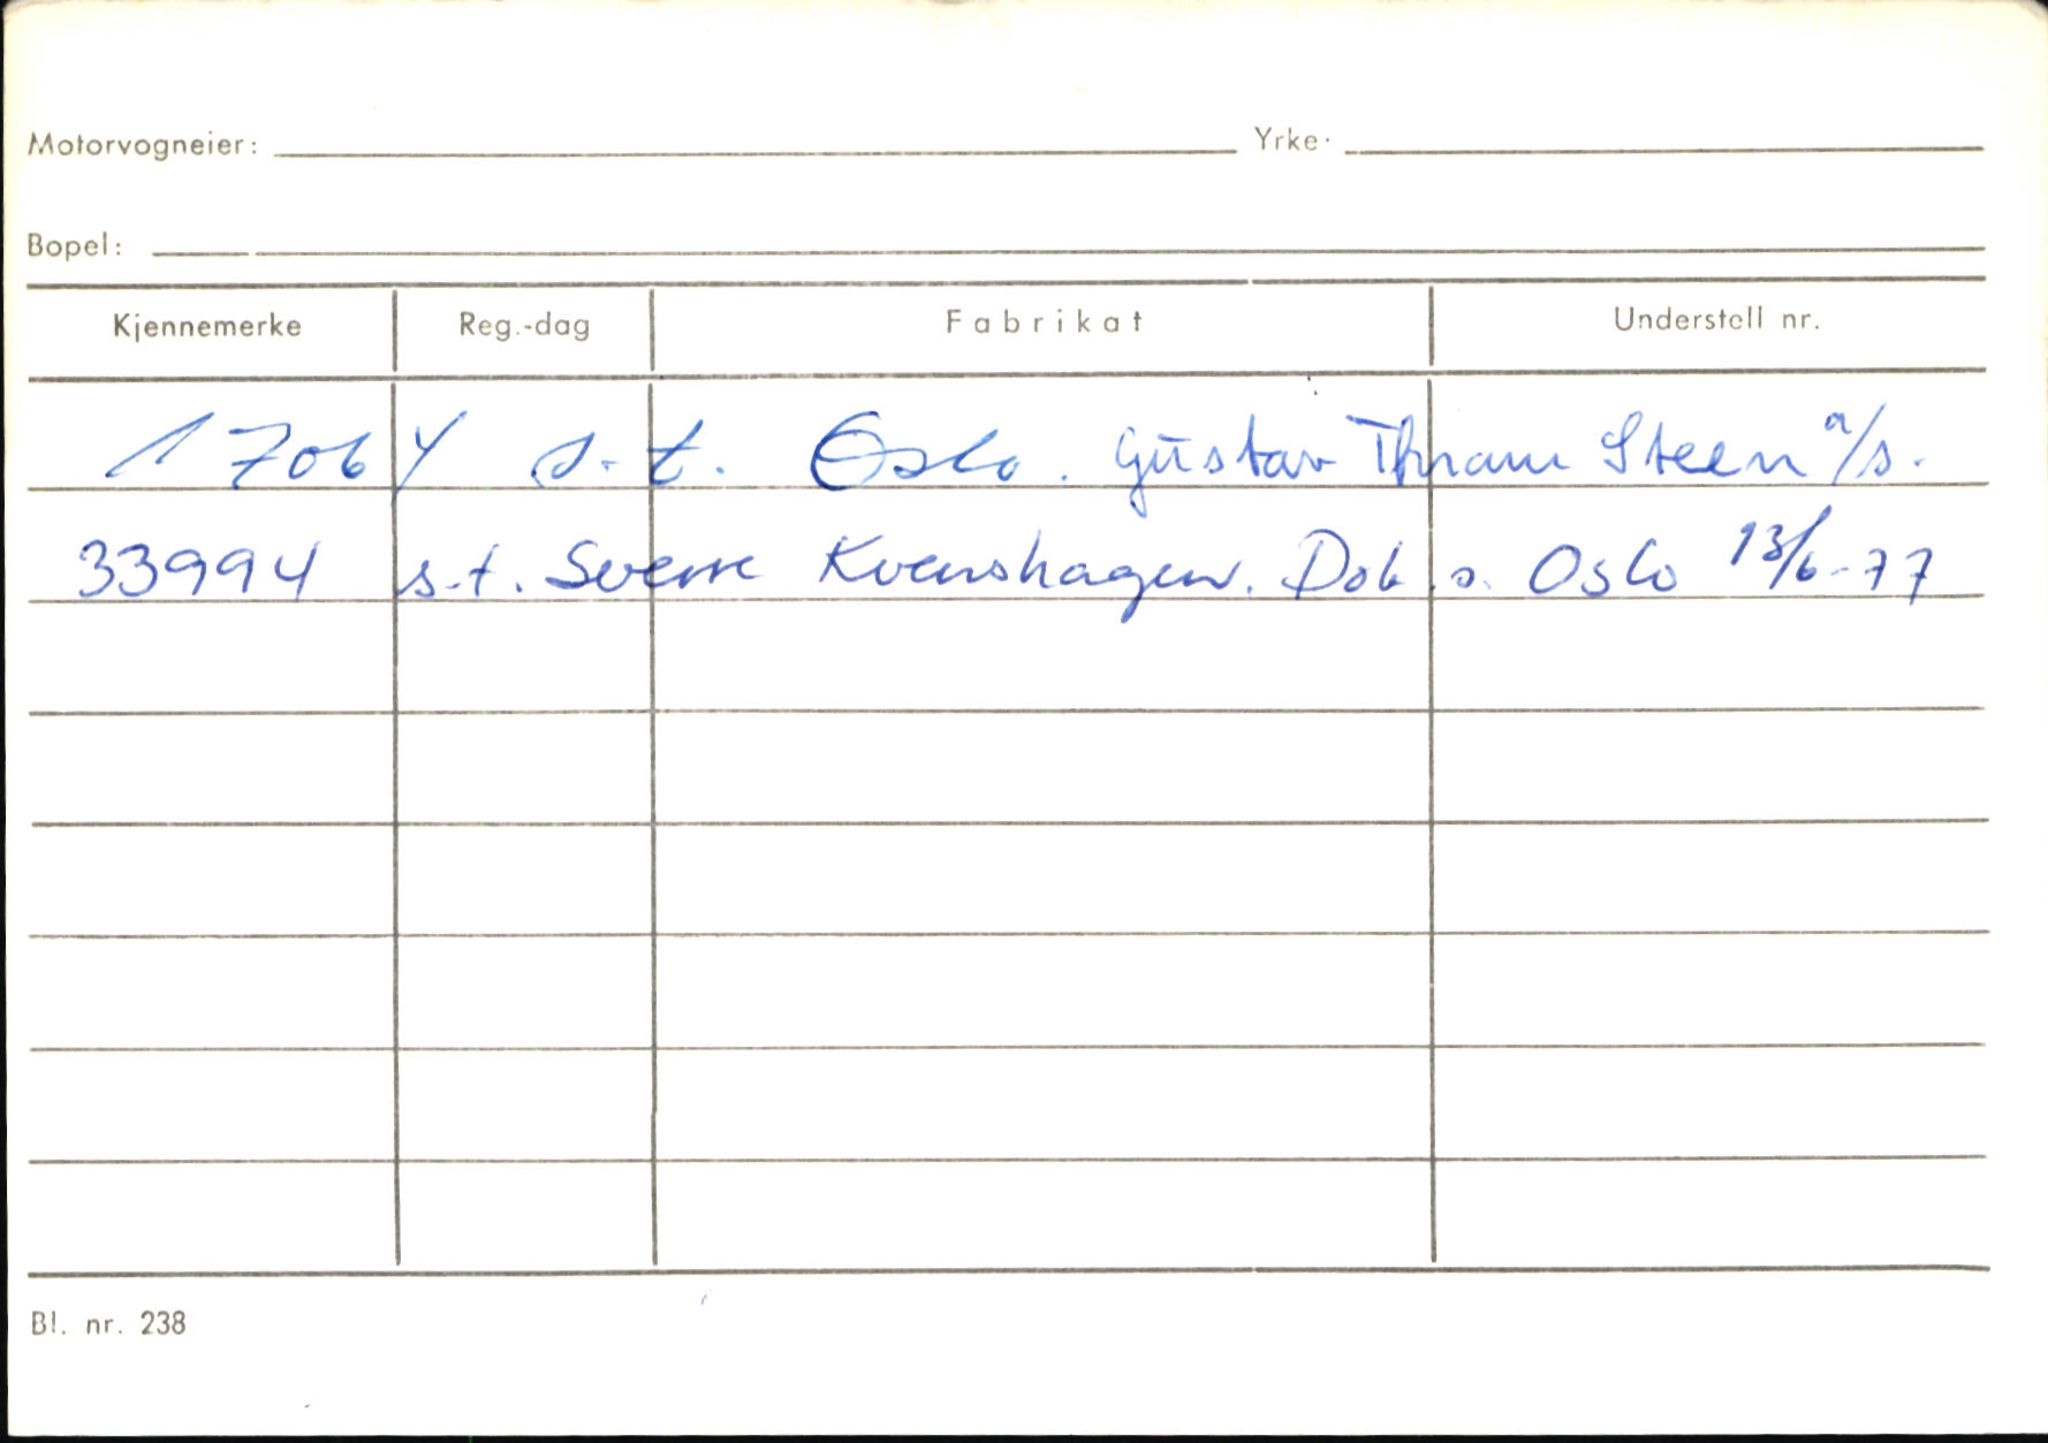 Motorvogneier: Yrke:
Bopel:
Kjennemerke Reg.-dag Fabrikat Understell nr.
17064 s.t. Oslo. Gustav Thrane Steen a/s.
33994 s.t. Sverre Kvenshagen. Dok. s. Oslo 13/6-77
Bl. nr. 238